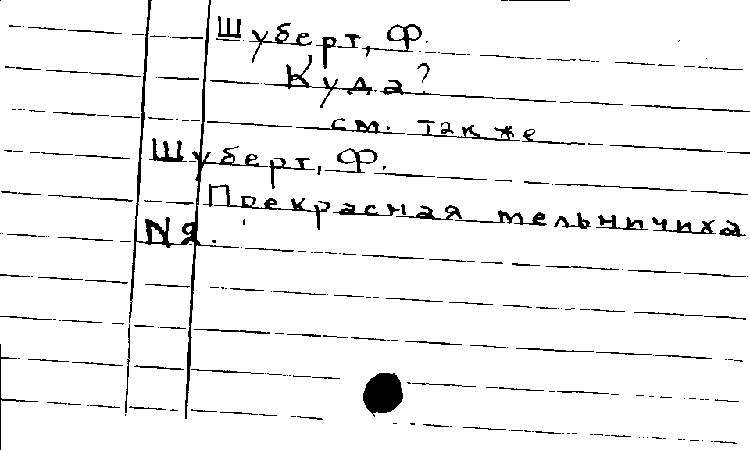 Шуберт, Ф.
Куда?
см. также
Шуберт, Ф.
Прекрасная мельничиха
N 2.